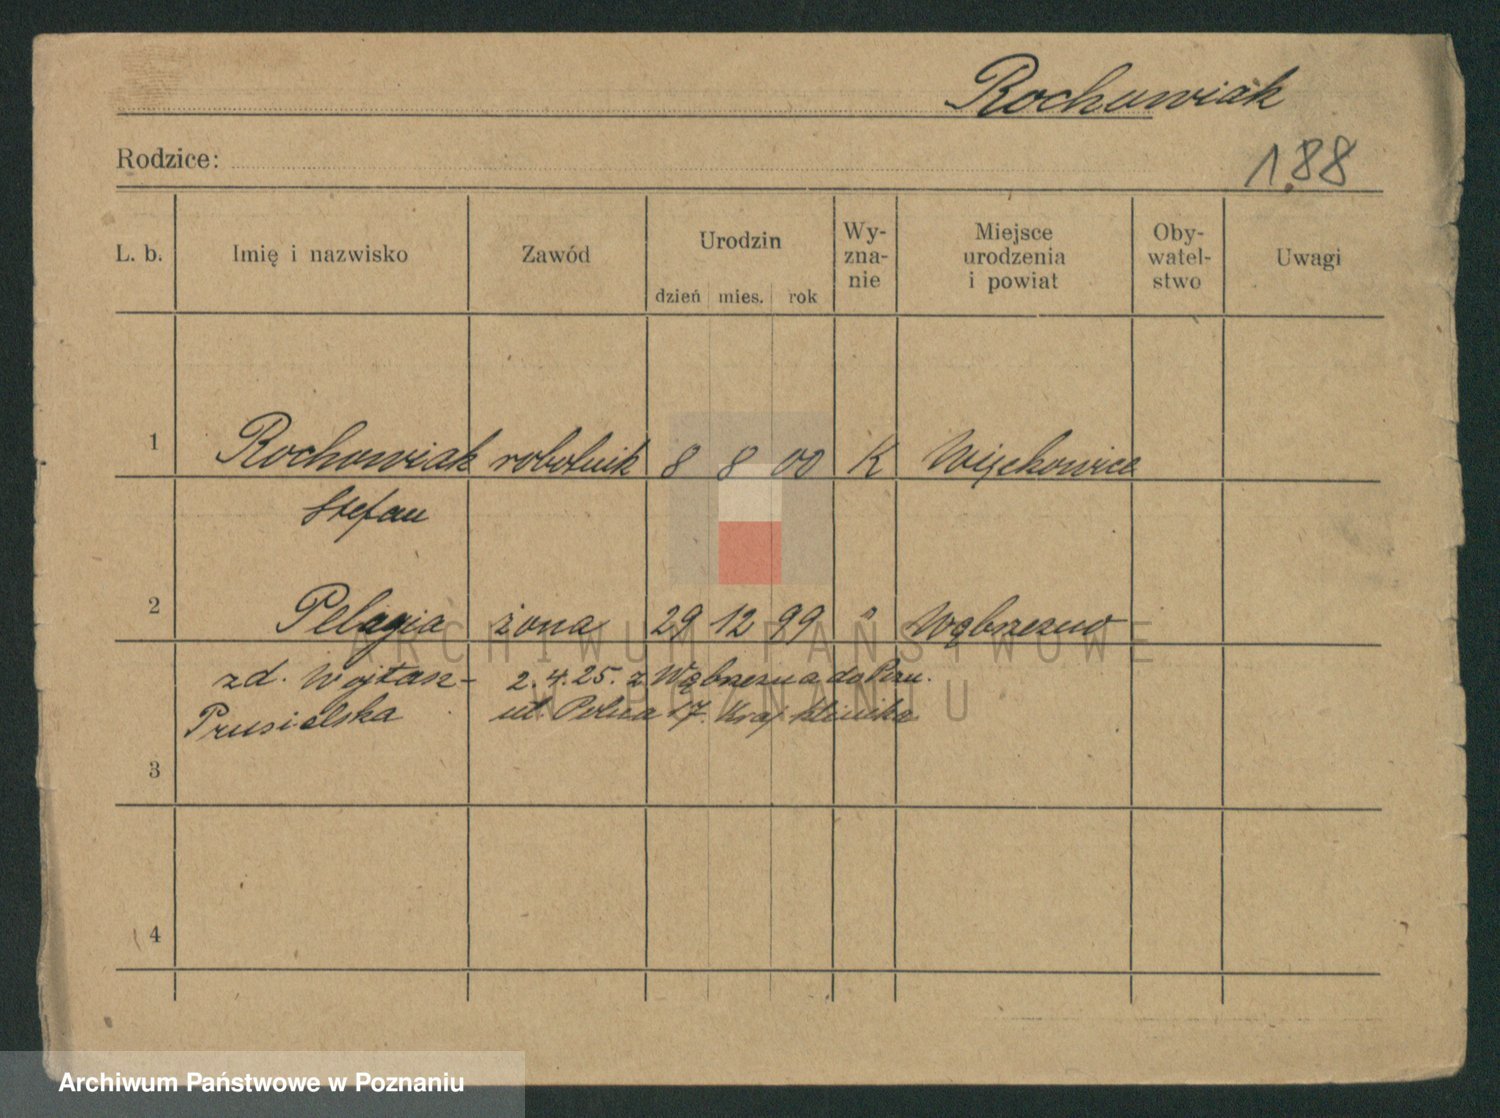 Rochowiak
Rodzice:
1.88
L. b. Imię i nazwisko Zawód Urodzin dzień mies. rok Wy-zna-nie Miejsce urodzenia i powiat Oby-watel-stwo Uwagi
1 Rochowiak robotnik 8 8 00 K Więckowice
Stefan
2 Pelagia żona 29 12 99 " Wąbrzeźno
zd. Wojtasz- 2.4.25. z Wąbrzezna do Pozn.
Prusielska ul. Polna 17. Kraj. klinika
3
4
ARCHIWUM PAŃSTWOWE
W POZNANIU
Archiwum Państwowe w Poznaniu